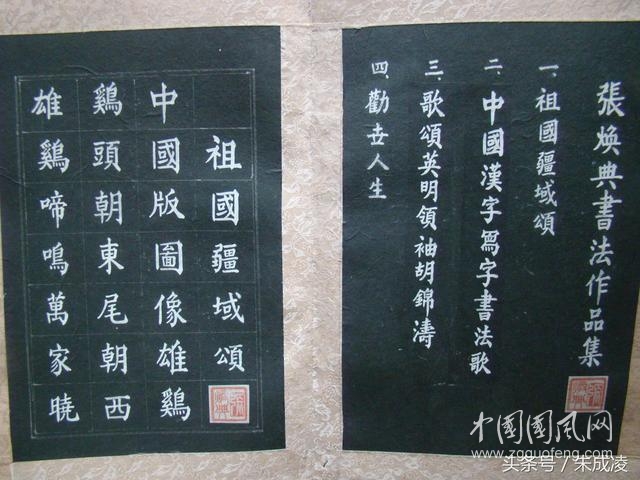 張煥典書法作品集
一、祖國疆域頌
二、中國漢字寫字書法歌
三、歌頌英明領袖胡錦濤
四、勸世人生
祖國疆域頌
中國版圖像雄鷄
鷄頭朝東尾朝西
雄鷄啼鳴萬家曉
中国国风网
www.zgguofeng.com
头条号／朱成凌